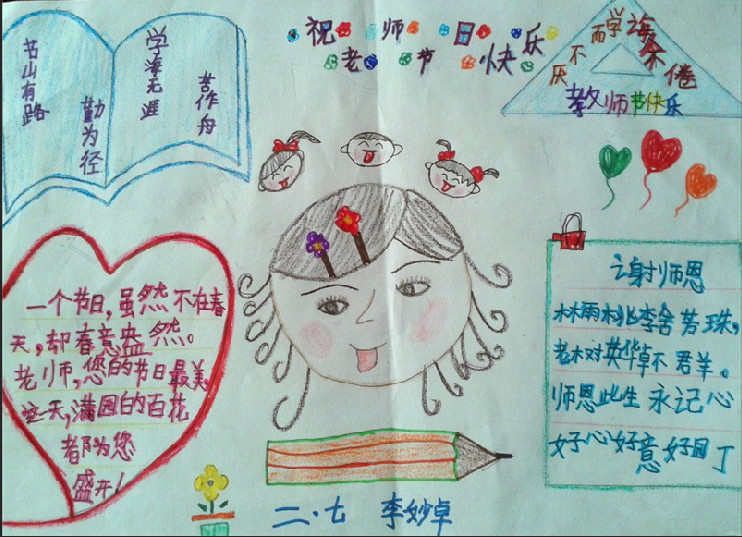 苦山有路
勤为径
学海无涯
苦作舟
祝老师节日快乐
学而不厌
海不倦
教师节快乐
一个节日,虽然不在春
天,却春意盎然。
老师,您的节日最美
这天,满园的百花
都为您
盛开!
谢师恩
林雨桃李含芳珠,
老树英华卓不群。
师恩此生永记心
好心好意好园丁
二·七 李妙卓